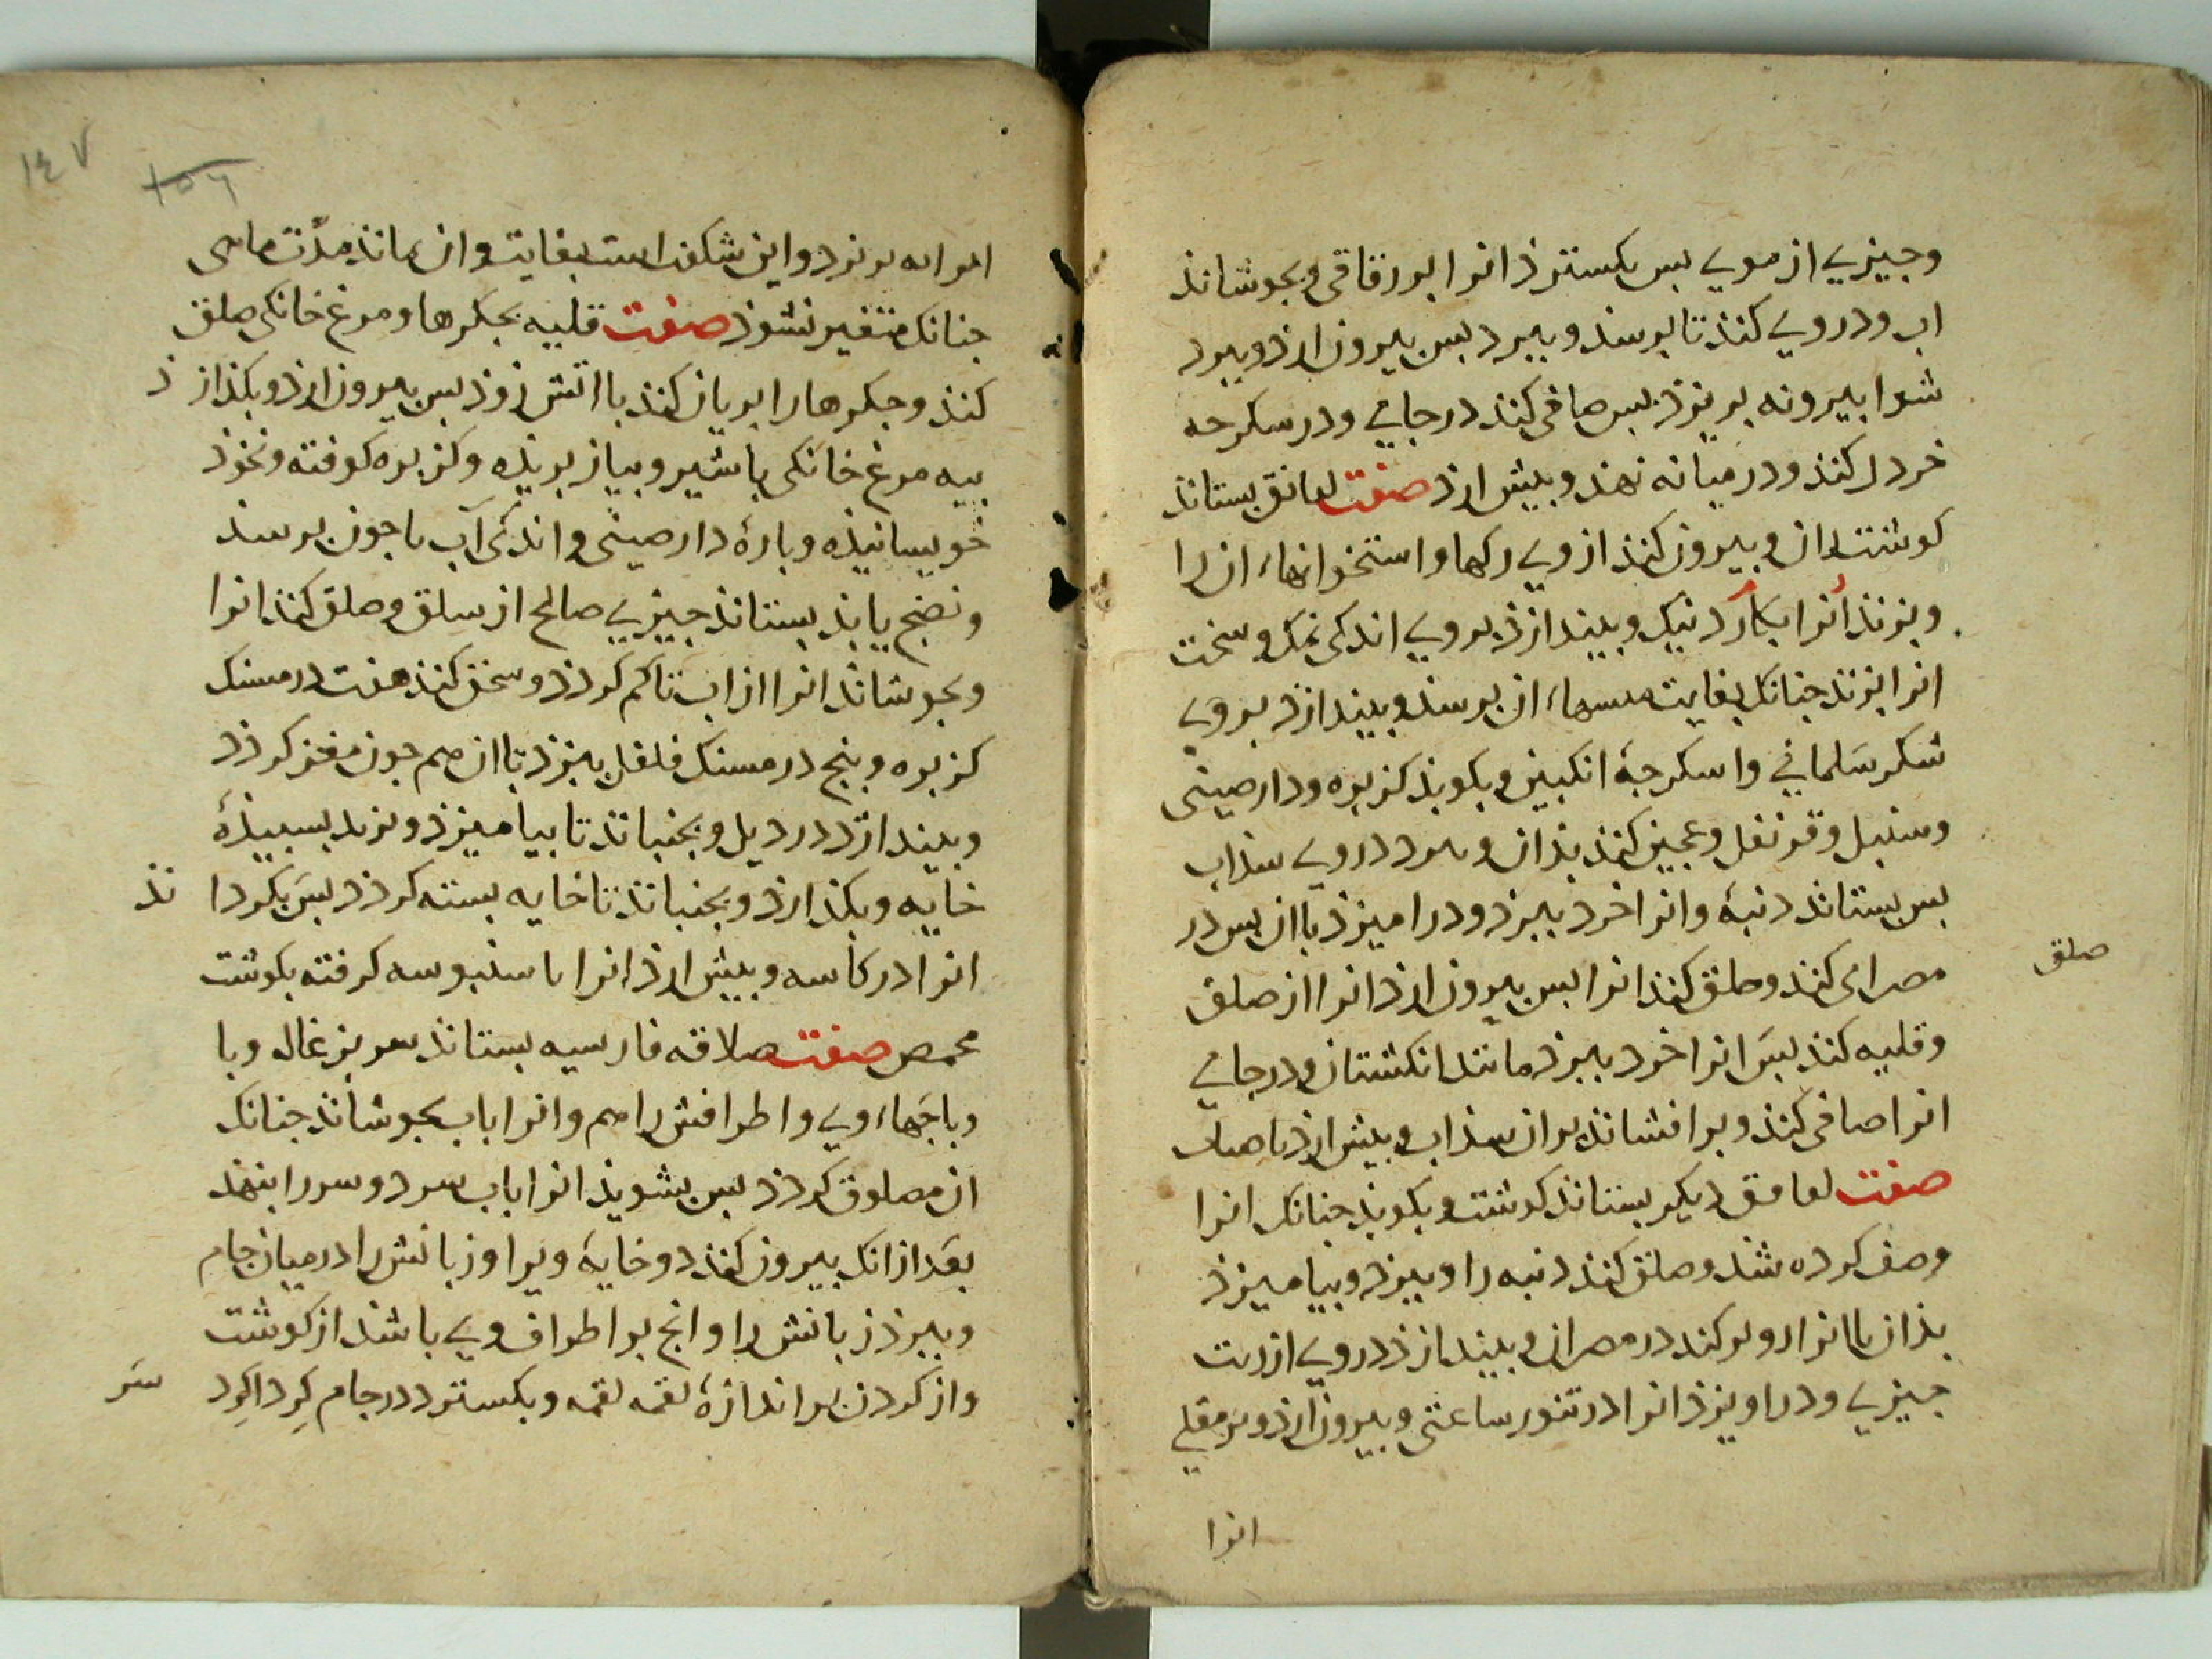 وجیزی از موی بس بکسترذ انرا بورقاقی و بجوشاند
اب ودروی کنند تا برسد و ببرد بس بیرون ارذ و ببرد
شوا بیرونه بریزذ بس صافی کند درجایی ودر سکرجه
خردل کند ودر میانه نهد و بیش ارذ صفت لعانق بستاند
کوشت ران و بیرون کند از وی رکها و استخوانهاء ان را
وبزند انرا بکارد نیک و بیندازذ بروی اندکی نمک و سخت
انرا بزند جنانک بغایت ان برسد و بیندازذ بروی
شکر سلمانی و اسکرجهٔ انکبین و بکوبد کزبره ودارصینی
وسنبل وقرنفل وعجین کند بذان و ببرد دروی سذاب
بس بستاند دنبهٔ وانرا خرد ببرد ودرامیزذ باان بس در
کند وصلق کند انرا بس بیرون ارذ انرا از صلق
صلق
وقلیه کند بس انرا خرد ببرد مانند انکشتان ودرجایی
انرا صافی کند وبرافشاند بران سذاب و بیش ارذ
صفت لعانق دیکر بستاند کوشت و بکوبد جنانک انرا
وصف کرده شد وصلق کند دنبه را و ببرد و بیامیزذ
بذان باانرا وبر کند در مصران و بیندازذ دروی ازیت
جیزی ودراویزذ انرا درتنور ساعتی و بیرون ارذ وبر مقلی
انرا
١٤٧
١٥٦
بریزد واین شکفت است بغایت وان بماند مدّت ماهی
جنانک متغیر نشوذ صفت قلیه بجکرها ومرغ خانکی صلق
کند وجکرها را بریان کند بااتش زوذ بس بیرون ارذ و بکذارذ
بیه مرغ خانکی باشیر و بیاز بریذه وکزبره کوفته ونخوذ
خویسانیذه وبارهٔ دارصینی واندکی آب با جون برسد
ونضج یابد بستاند جیزی صالح از سلق وصلق کند انرا
وبجوشاند انرا ازاب تا کم کردذ وسحق کند هفت درمسنک
کزبره وبنج درمسنک فلفل بیزد باان هم جون مغز کردذ
وبیندازد دردیل و بجنباند تا بیامیزذ وبزند بسبیذهٔ
خایه و بکذارذ و بجنباند تا خایه بسته کردذ بس بکرداند
انرا درکاسه و بیش ارذ انرا با سنبوسه کرفته بکوشت
محمص صفت صلاقه فارسیه بستاند سر بزغاله وبا
وباجهاء وی واطرافش را هم وانرا باب بجوشاند جنانک
ان مصلوق کردذ بس بشوید انرا باب سرد وسر را بنهد
بعد ازانک بیرون کند دوخایهٔ ویرا و زبانش را درمیان جام
و ببرذ زبانش را وانج بر اطراف وی باشد از کوشت
واز کردن بر اندازهٔ لقمه لقمه و بکسترد درجام کرداکرد سر